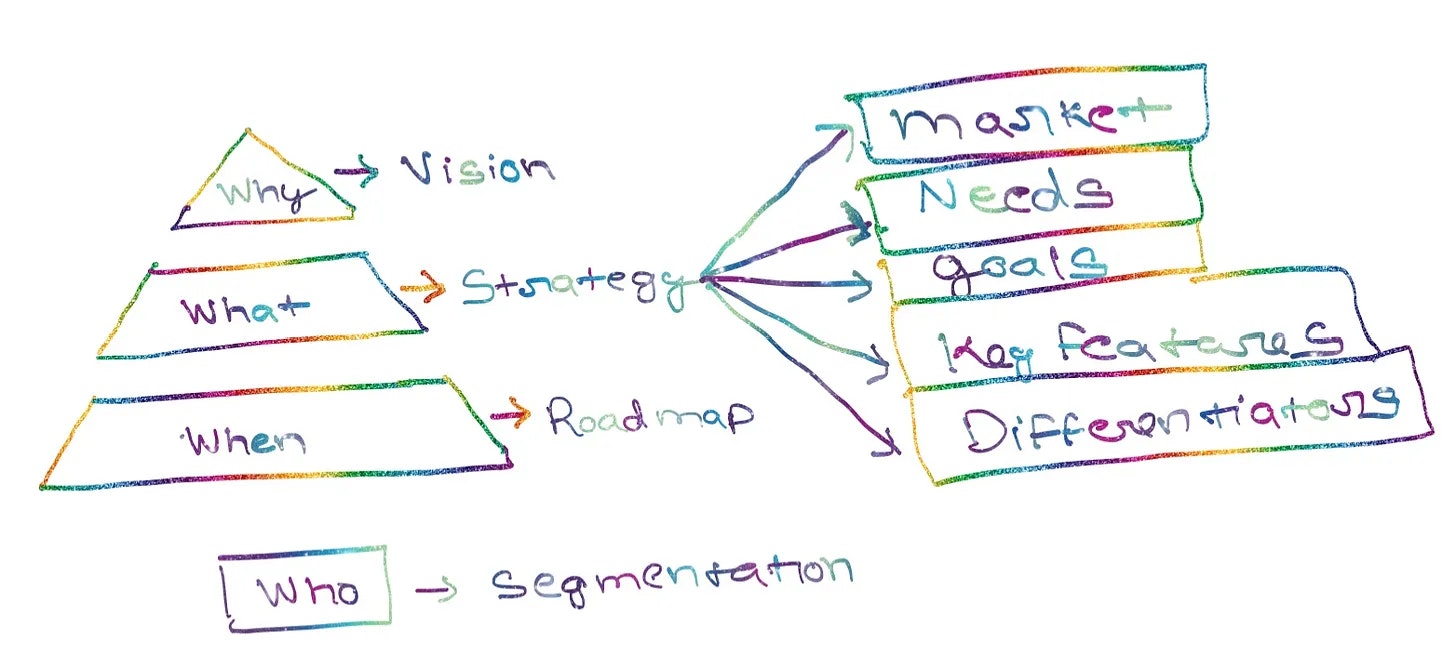 Why → Vision
What → Strategy
When → Roadmap
Market
Needs
goals
Key features
Differentiators
Who → Segmentation